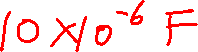 10 x 10⁻⁶ F